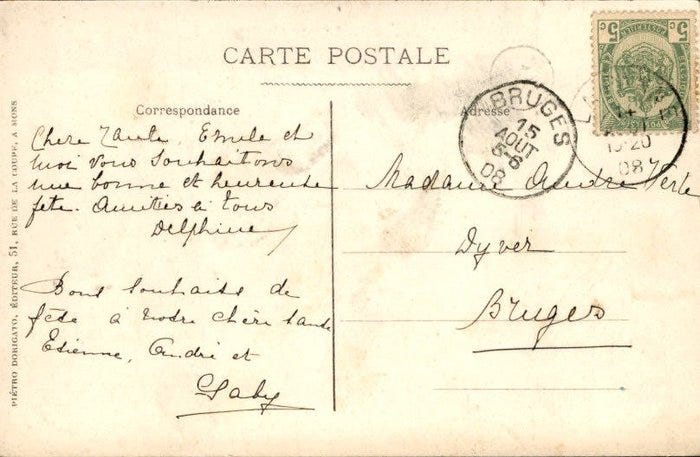 CARTE POSTALE
Correspondance
Chère Tante, Emile et
moi vous souhaitons
une bonne et heureuse
fête. Amitiés à tous
Delphine
Bons souhaits de
fête à notre chère tante
Etienne, André et
Gaby
PIÉTRO DORIGATO, ÉDITEUR, 51, RUE DE LA COUPE, A MONS
Adresse
BRUGES
15
AOUT
5-6
08
5c 5c
14
15-20
08
Madame André
Dyver
Bruges